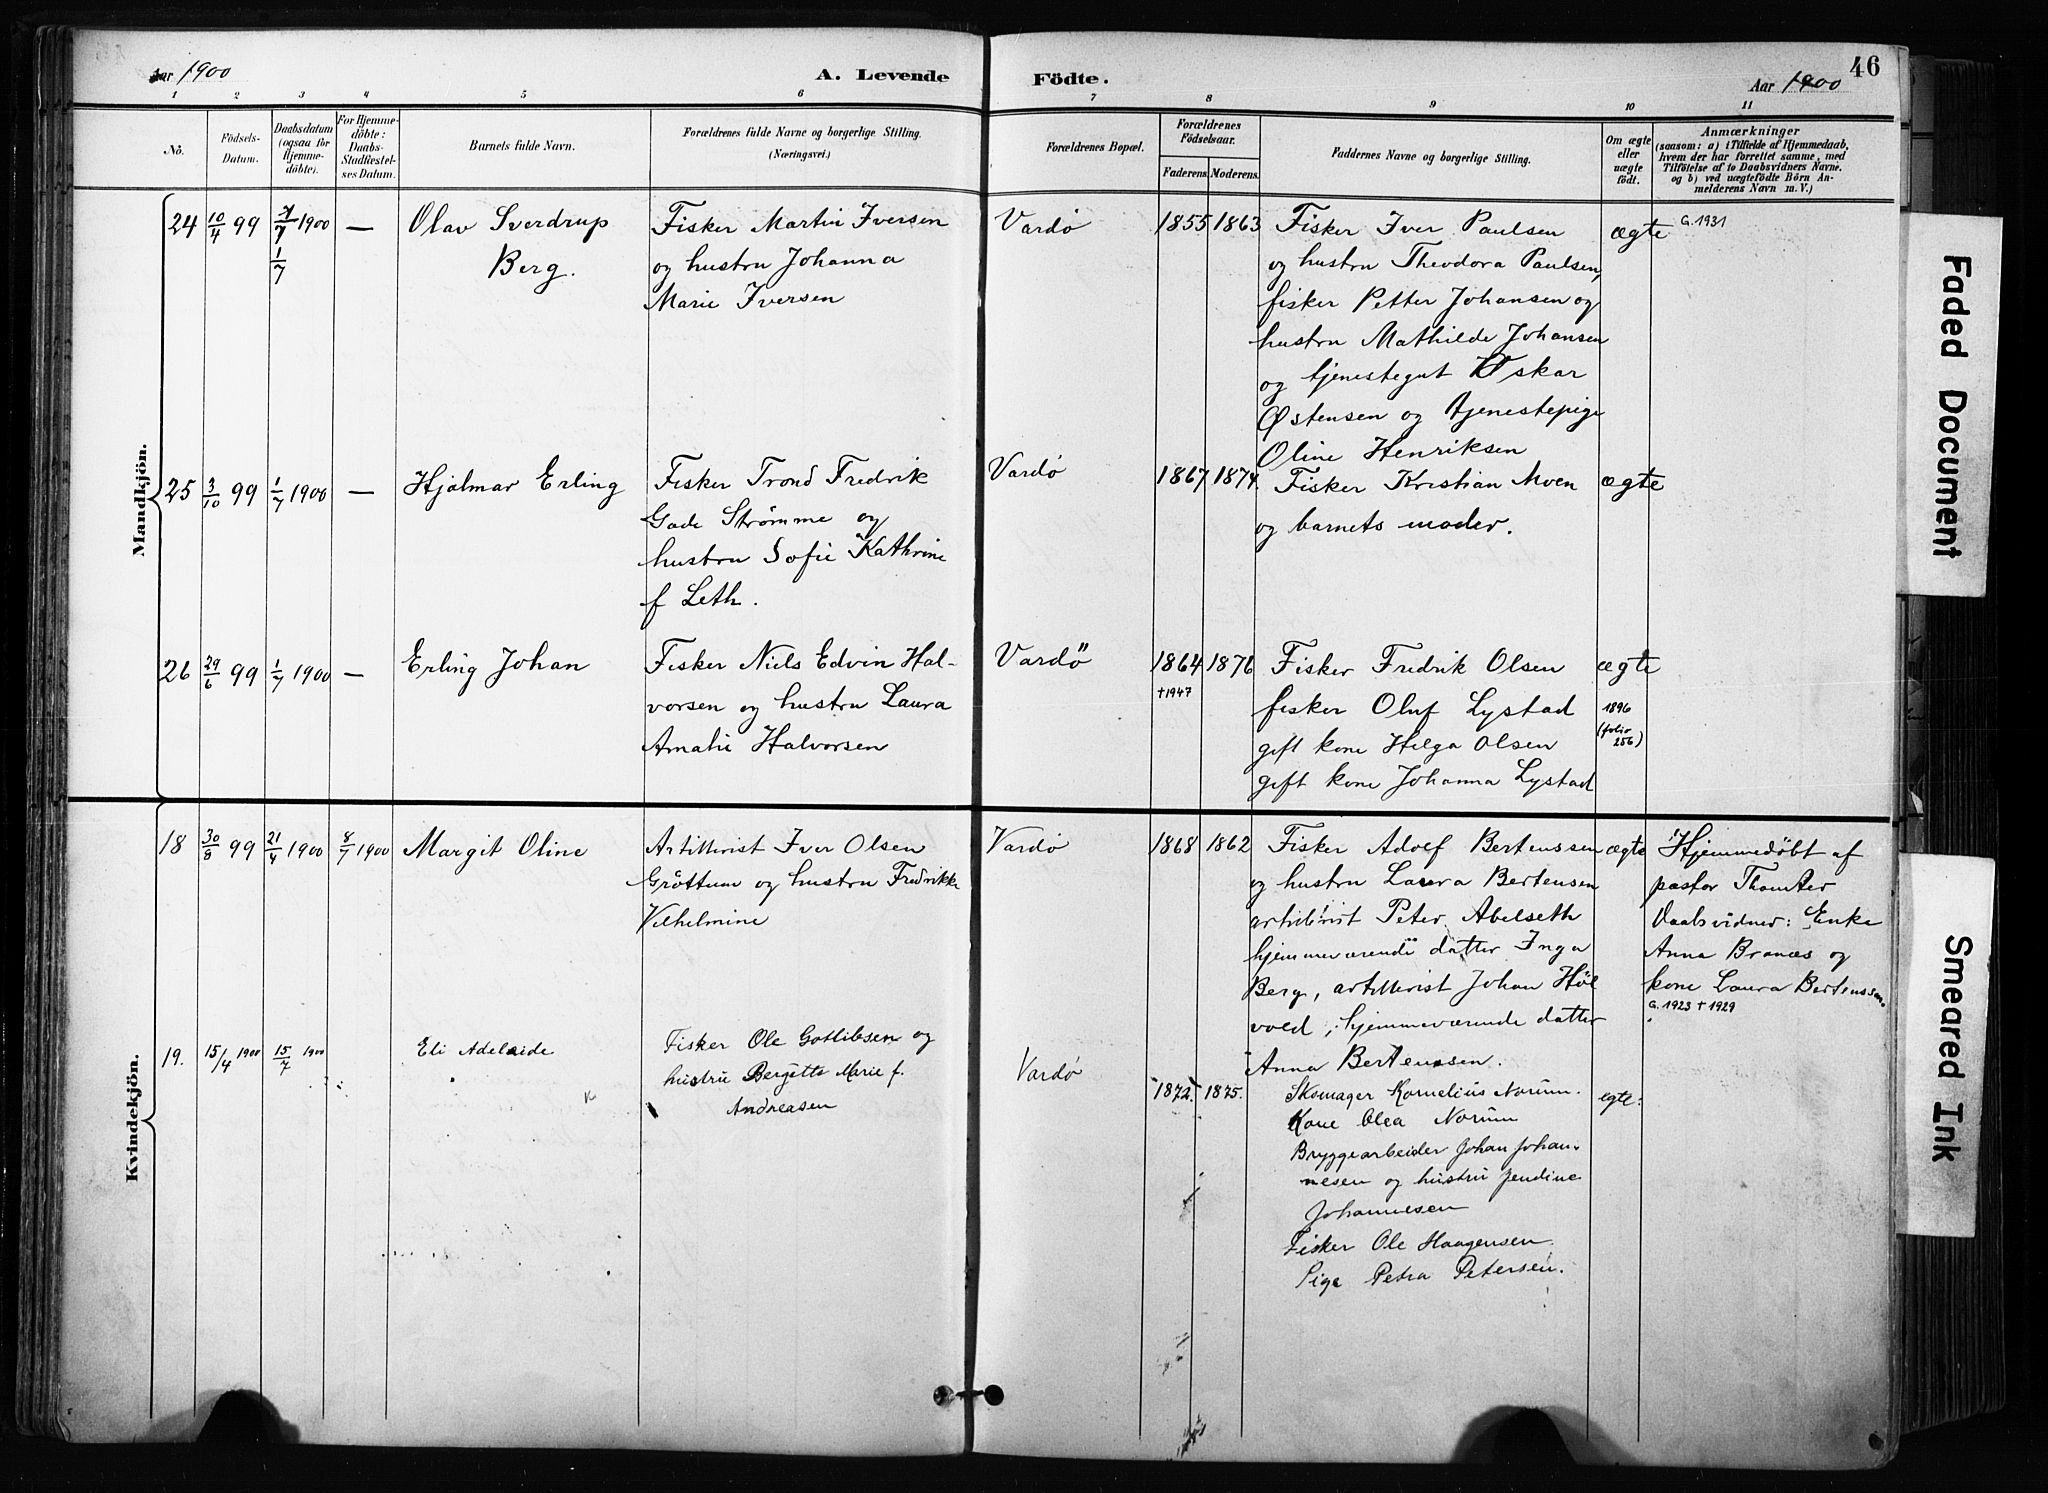 Aar 1900
A. Levende
Födte.
Aar 1900
46
1 2 3 4 5 6 7 8 9 10 11
No.
Födsels-
Datum.
Daabsdatum
(ogsaa for
Hjemme-
döbte).
For Hjemme-
döbte:
Daabs-
Stadfæstel-
ses Datum.
Barnets fulde Navn.
Forældrenes fulde Navne og borgerlige Stilling.
(Næringsvei.)
Forældrenes Bopæl.
Forældrenes
Födselsaar.
Faderens. Moderens.
Faddernes Navne og borgerlige Stilling.
Om ægte
eller
uægte
født.
Anmærkninger
(saasom: a) i Tilfælde af Hjemmedaab,
hvem der har forrettet samme, med
Tilföielse af to Daabsvidners Navne.
og b) ved uægtefödte Börn An-
melderens Navn m. V.)
Mandkjön.
24 10/4 99 1/7 1900 —
1/7
Olav Sverdrup
Berg.
Fisker Martin Iversen
og hustru Johanna
Marie Iversen
Vardø
1855 1863
Fisker Iver Paulsen
og hustru Theodora Paulsen,
fisker Petter Johansen og
hustru Mathilde Johansen
og tjenestegut Oskar
Østensen og tjenestepige
Oline Henriksen
ægte
G. 1931
25 3/10 99 1/7 1900 —
Hjalmar Erling
Fisker Trond Fredrik
Gade Strømme og
hustru Sofie Kathrine
f Leth.
Vardø
1867 1874.
Fisker Kristian Moen
og barnets moder.
ægte
26 29/6 99 1/7 1900 —
Erling Johan
Fisker Niels Edvin Hal-
vorsen og hustru Laura
Amalie Halvorsen
Vardö
1864 1876
†1947
Fisker Fredrik Olsen
fisker Oluf Lystad
gift kone Helga Olsen
gift kone Johanna Lystad
ægte
1896
(folio
256)
Kvindekjön.
18 30/8 99 21/4 1900 8/7 1900
Margit Oline
Artillerist Iver Olsen
Gröttum og hustru Fredrikke
Vilhelmine
Vardø
1868 1862
Fisker Adolf Bertenssen
og hustru Laura Bertensen
artillerist Peter Abelseth
hjemmeværende datter Inga
Berg, artillerist Johan Höl
vold, hjemmeværende datter
Anna Bertenssen.
ægte
Hjemmedöbt af
pastor
Daabsvidner: Enke
Anna Branæs og
kone Laura Bertenssen.
G. 1923 † 1929
19. 15/4 1900 15/7 1900
Eli Adelaide
Fisker Ole Gotlibsen og
hustru Bergitte Marie f.
Andreasen
Vardø
1872. 1875.
Skomager Kornelius Norum.
Kone Olea Norum
Bryggearbeider Johan Johan-
nesen og hustru Jendine
Johannesen
Fisker Ole Haagensen.
Pige Petra Petersen.
egte.
Faded Document
Smeared Ink